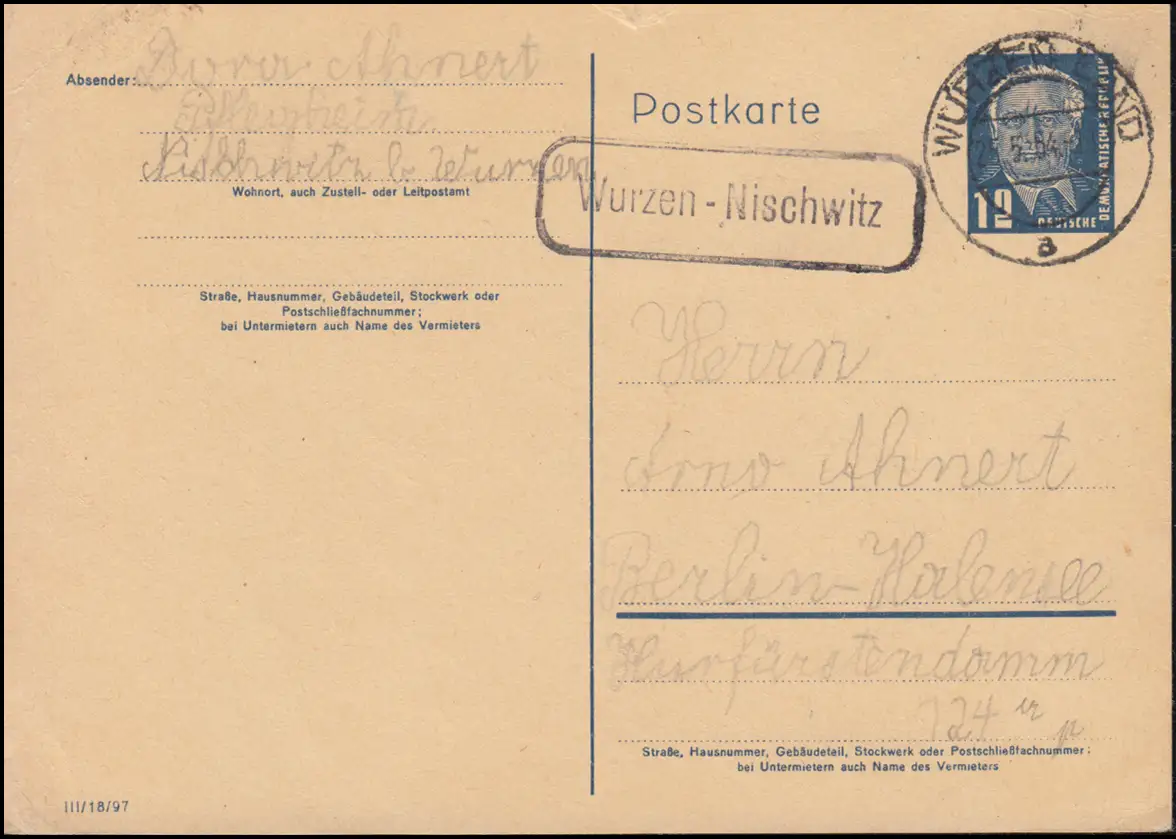 Absender: Dora Ahnert
Nischwitz b. Wurzen
Wohnort, auch Zustell- oder Leitpostamt
Straße, Hausnummer, Gebäudeteil, Stockwerk oder
Postschließfachnummer;
bei Untermietern auch Name des Vermieters
III/18/97
Postkarte
Wurzen - Nischwitz
WURZEN LAND
5.54
a
10
DEUTSCHE
DEMOKRATISCHE REPUBLIK
Herrn
Arno Ahnert
Berlin-Halensee
Kurfürstendamm
124
Straße, Hausnummer, Gebäudeteil, Stockwerk oder Postschließfachnummer;
bei Untermietern auch Name des Vermieters